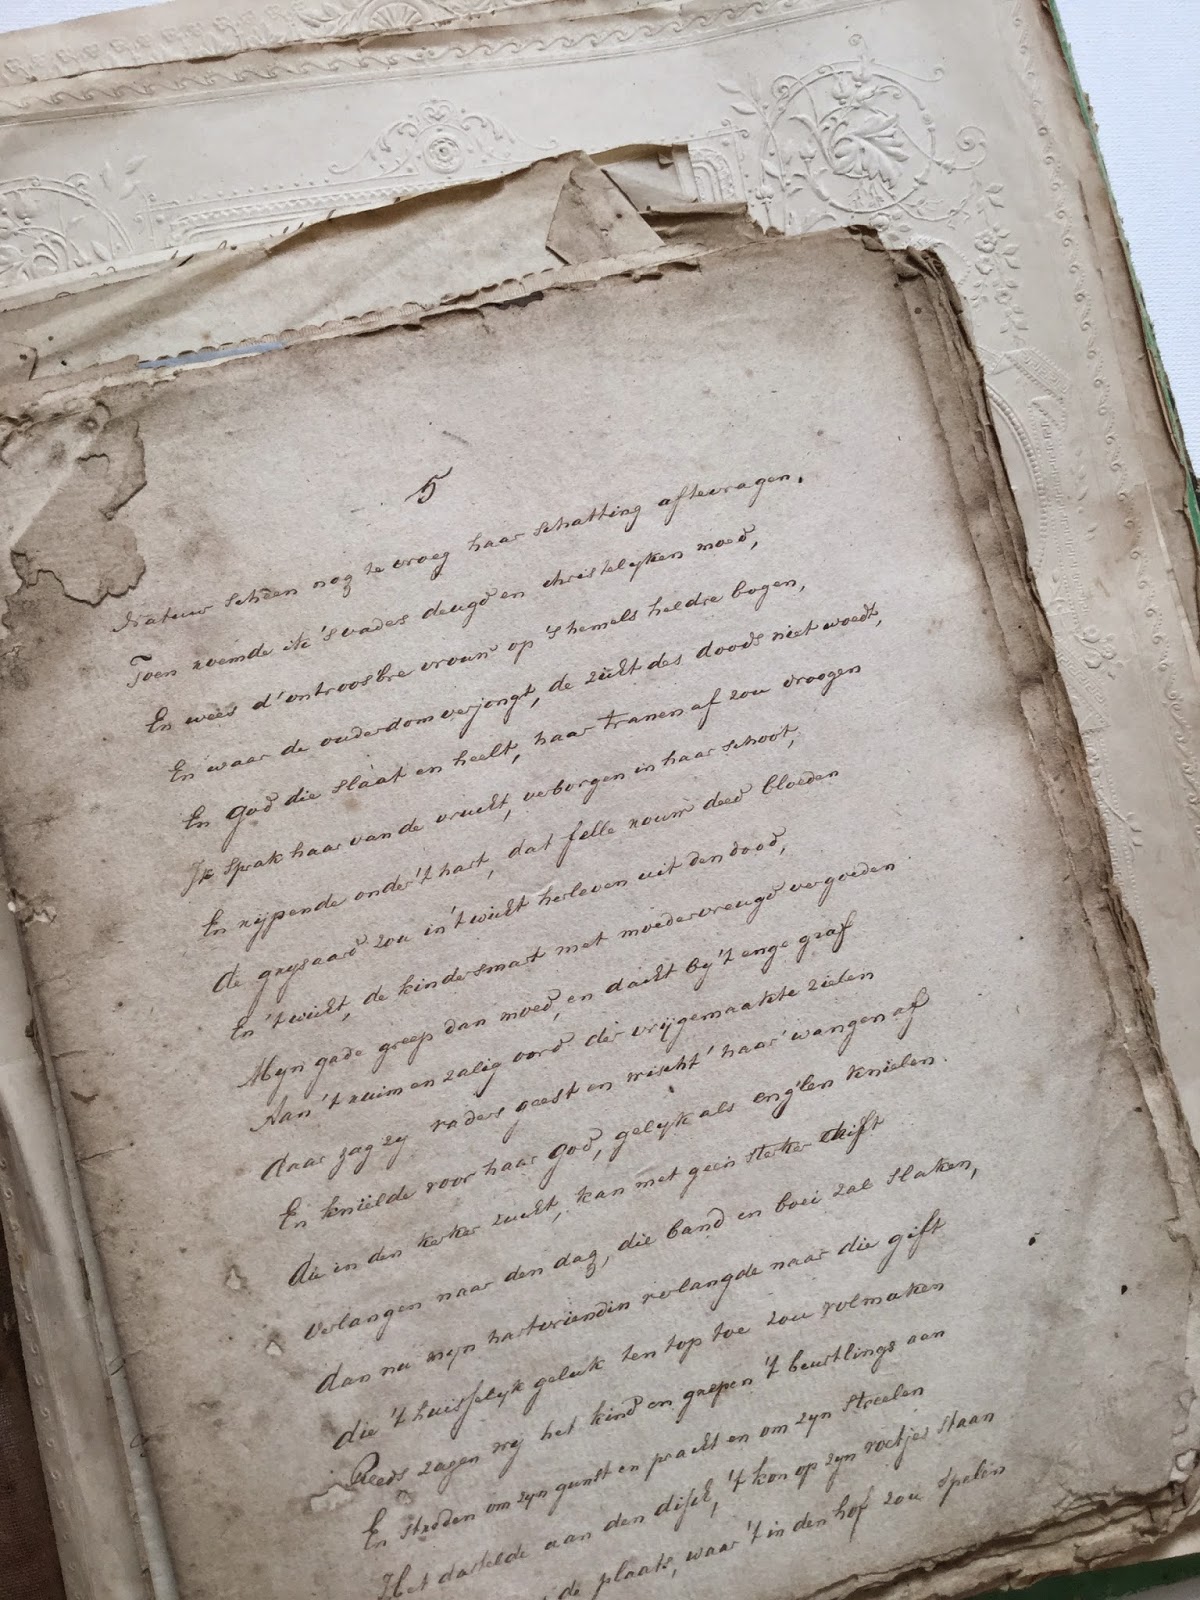 5
Natuur scheen nog te vroeg haar schatting aftevragen,
Toen roemde ik 's vaders deugd en christelyken moed,
En wees d'ontroosbre vrouw op 's hemels heldre bogen,
En waar de ouderdom verjongt, de zucht des doods niet woedt,
En God die slaat en heelt, haar tranen af zou droogen
Ik sprak haar van de vrucht, verborgen in haar schoot,
En nypende onder 't hart, dat felle rouw deed bloeden
de grysaard zou in 't wicht herleven uit den dood,
En 't wicht, de kindersmart met moedervreugd vergoeden
Myn gade greep dan moed, en dacht by 't enge graf
Aan 't ruim en zalig oord der vrijgemaakte zielen
daar zag zy vaders geest en wischt' haar wangen af
En kniëlde voor haar God, gelyk als eng'len knielen.
die in den kerker zucht, kan met geen sterker drift
verlangen naar den dag, die band en boei zal slaken,
dan nu myn hartvriendin verlangde naar die gift
die 't huisselyk geluk ten top toe zou volmaken
Reeds zagen wy het kind en grepen 't beurtlings aan
En streden om zyn gunst en pracht en om zyn streelen
Het dartelde aan den disch, 't kon op zyn voetjes staan
de plaats, waar 't in den hof zou spelen